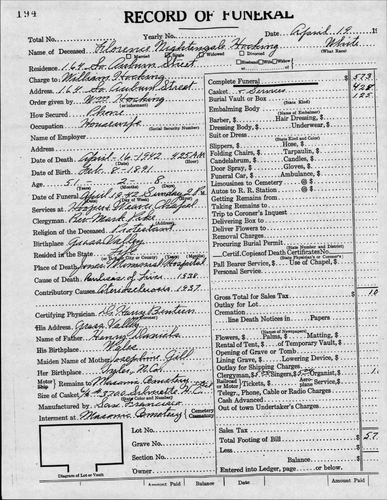 194
RECORD OF FUNERAL
Total No. Yearly No. Date April 19 19
Name of Deceased Florence Nightingale Hocking White
Married Female Widowed Divorced (What Race)
Residence 164 So. Auburn Street Husband Wife Widow of
Charge to William Hocking
Address 164 So. Auburn Street
Order given by Wm. Hocking
How Secured Phone
Occupation Housewife (Social Security Number)
Name of Employer
Address
Date of Death April 16-1942 4:25 A.M.
Date of Birth Feb. 8-1891
Age 51 2 8
(Years) (Months) (Days)
Date of Funeral April 1942 Sunday
Services at Hoopers Weaver Chapel
Clergyman Rev Mark
Religion of the Deceased Protestant
Birthplace Grass Valley
Resided in the State Life
Place of Death Jones Memorial Hospital
Cause of Death
Contributory Causes Arteriosclerosis 1937
Certifying Physician Dr. Harry
His Address Grass Valley
Name of Father Henry Daniels
His Birthplace Wales
Maiden Name of Mother Josephine Gill
Her Birthplace
Motor Ship Remains to Masonic Cemetery
Size of Casket
Manufactured by San Francisco
Interment at Masonic Cemetery Cemetery Crematory
Lot No.
Grave No.
Section No.
Owner
Diagram of Lot or Vault
Complete Funeral $ 573
Casket & Services 428
Burial Vault or Box 125
(State Kind)
Embalming Body
(Name of Embalmer)
Barber, $ Hair Dressing, $
Dressing Body, $ Underwear, $
Suit or Dress
(State Kind and Color)
Slippers, $ Hose, $
Folding Chairs, $ Tarpaulin, $
Candelabrum, $ Candles, $
Door Spray, $ Gloves, $
Funeral Car, $ Ambulance, $
Limousines to Cemetery @ $
Autos to R. R. Station @ $
Getting Remains from
Taking Remains to
Trip to Coroner's Inquest
Delivering Box to
Deliver Flowers to
Removal Charges
Procuring Burial Permit
(State Number and District)
Certif. Copies of Death Certificates No.
(Pay Physician's or Coroner's)
Pall Bearer Service, $ Use of Chapel, $
Personal Service
Gross Total for Sales Tax $
Outlay for Lot
Cremation
line Death Notices in Papers
(Names of Newspapers)
Flowers, $ Palms, $ Matting, $
Rental of Tent, $ of Temporary Vault, $
Opening of Grave or Tomb
Lining Grave, $ Lowering Device, $
Outlay for Shipping Charges
Clergyman, $ Singers, $ Organist, $
Railroad or Motor Tickets, $ Aeroplane Service, $
Telegr., Phone, Cable or Radio Charges
Cash Advanced
Out of town Undertaker's Charges
Sales Tax $
Total Footing of Bill $ 57
Less $
Balance $
Entered into Ledger, page or below
Amount Paid Balance Date Amount Paid